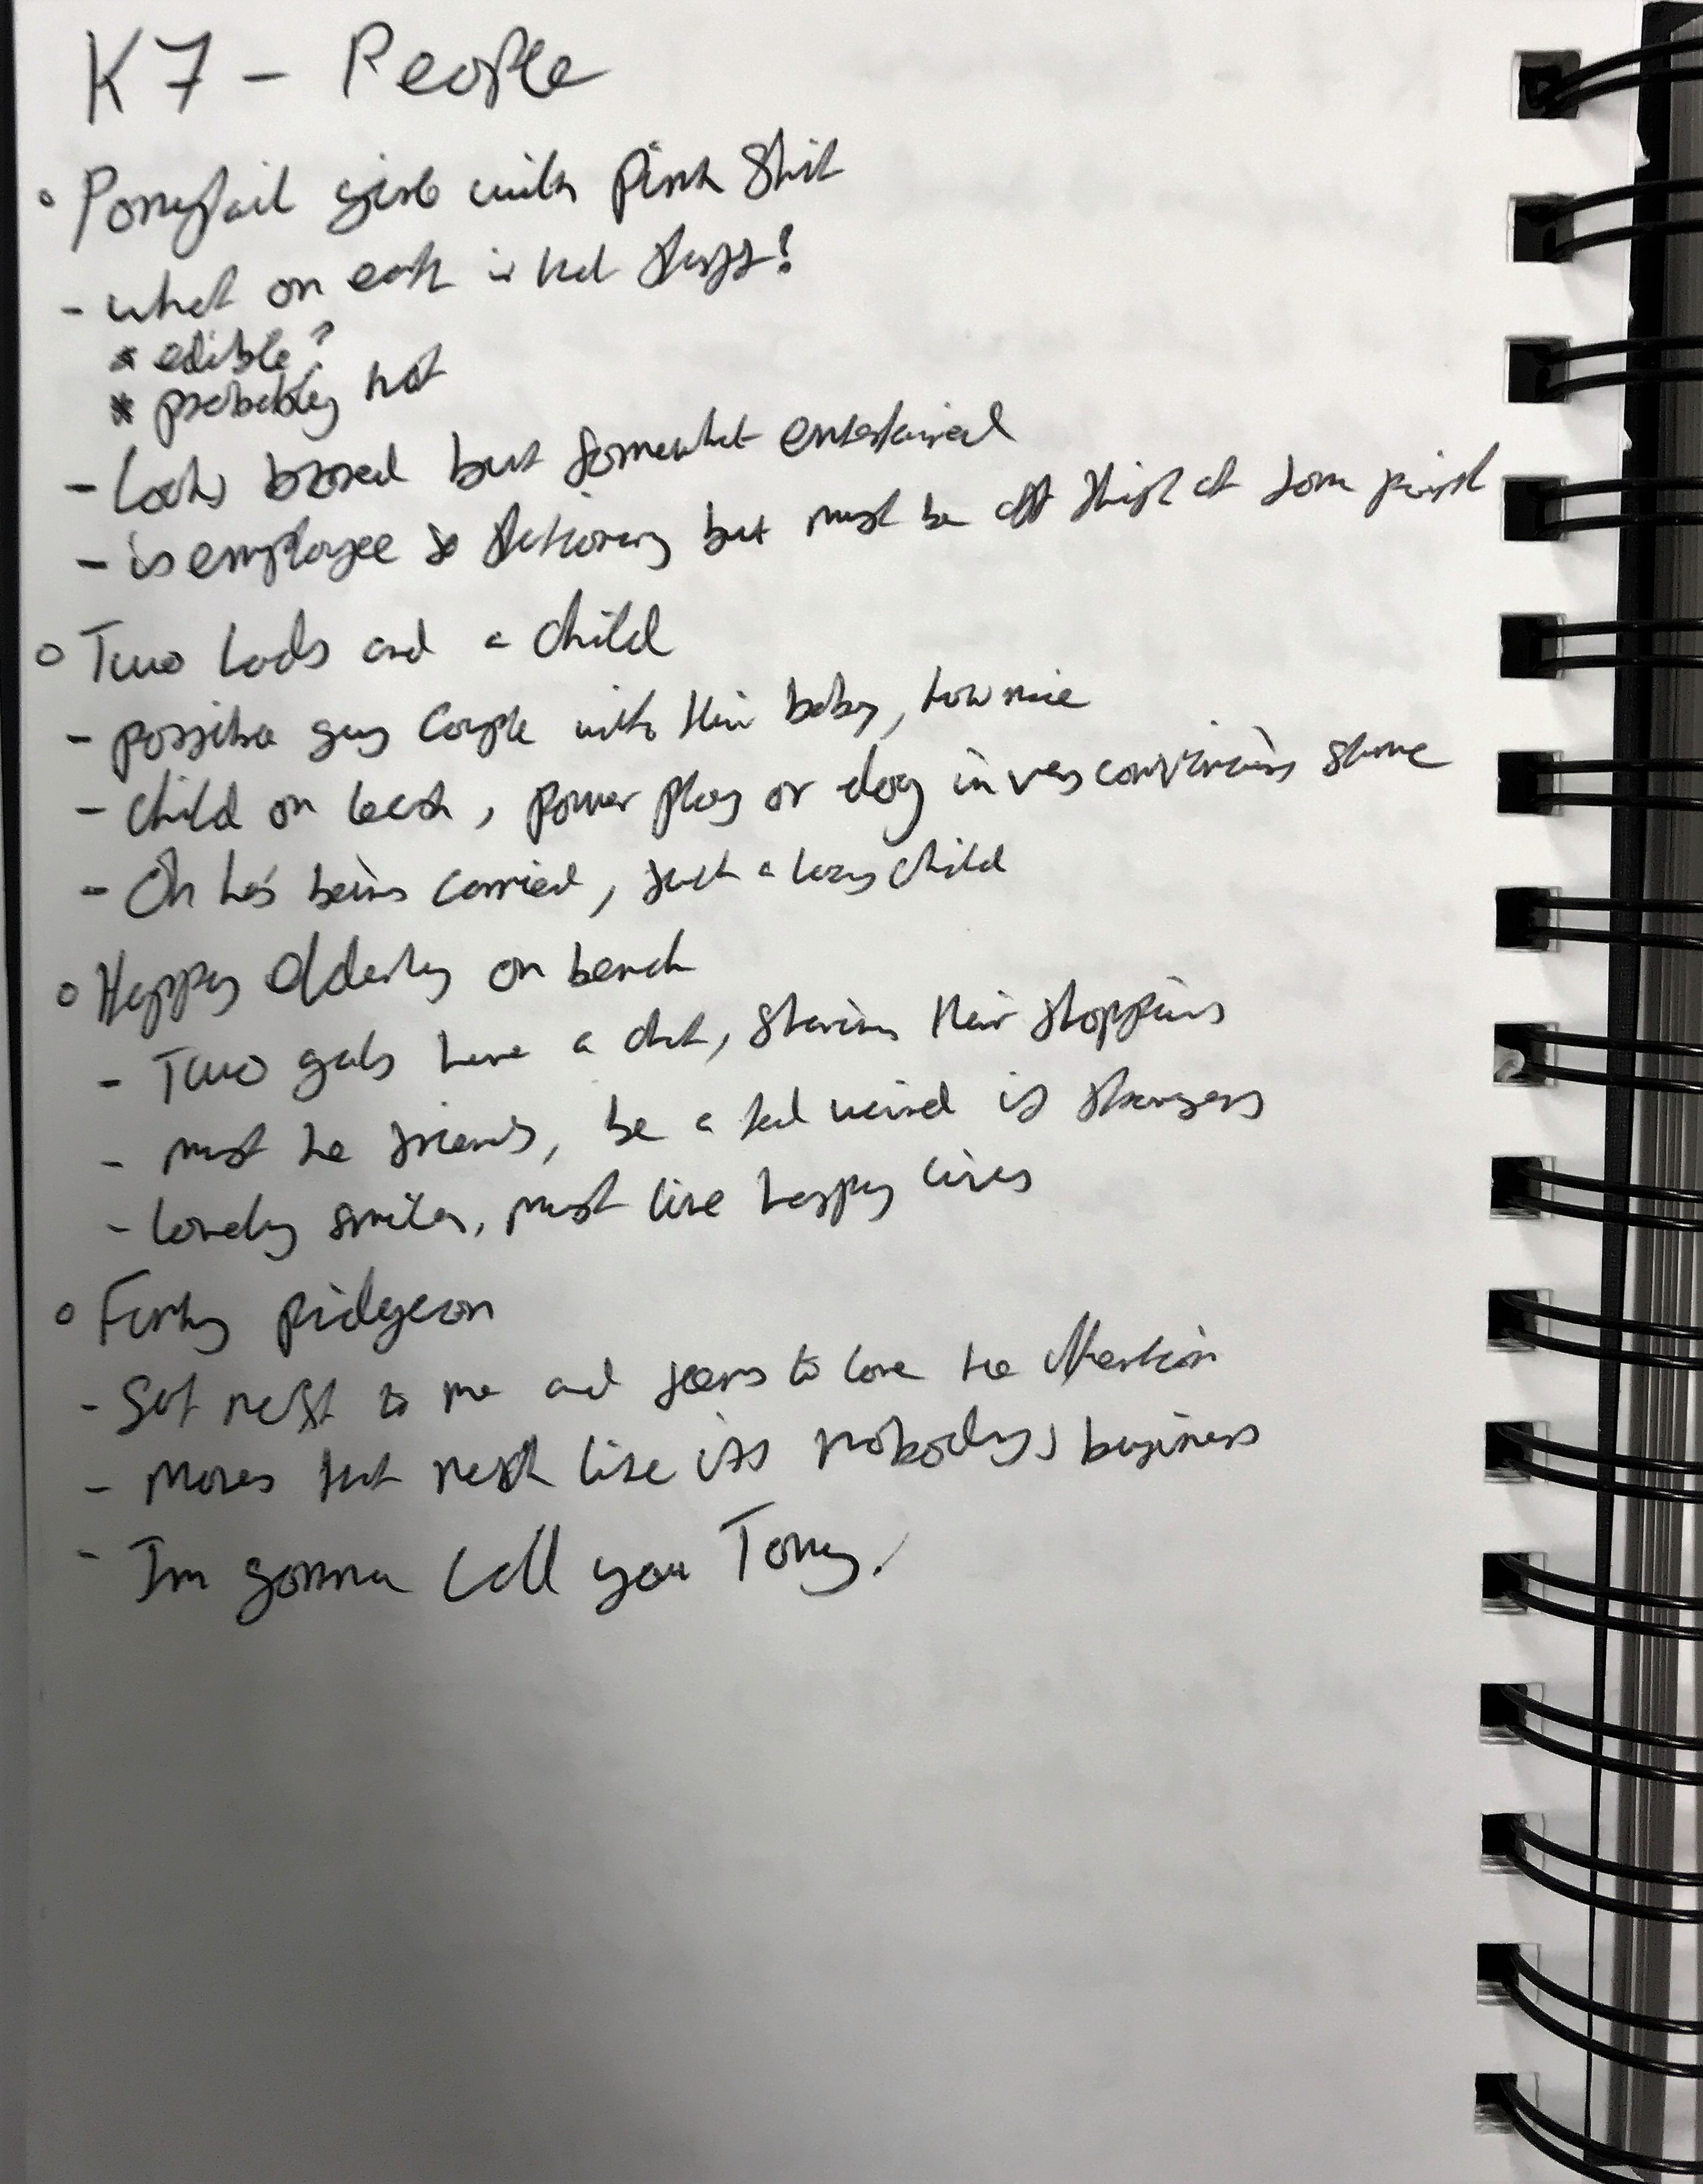 K7 - People
° Ponytail girl with pink shit
- what on earth is that stuff?
* edible?
* probably not
- Looks bored but somewhat entertained
- is employee so stationary but must be off shift at some point
° Two Lads and a child
- possible gay couple with their baby, how nice
- Child on leash, power play or dog in very convincing
- Oh he's being carried, such a lazy child
° Happy elderly on bench
- Two gals have a chat, sharing their shopping
- must be friends, be a tad weird if strangers
- lovely smiles, must live happy lives
° Funky pidgeon
- Sat next to me and seems to love the attention
- Moves that neck like its nobodys business
- Im gonna call you Tony.